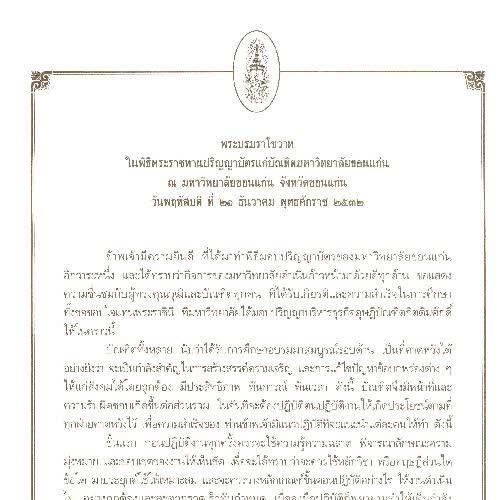 พระบรมราโชวาท
ในพิธีพระราชทานปริญญาบัตรแก่บัณฑิตมหาวิทยาลัยขอนแก่น
ณ มหาวิทยาลัยขอนแก่น จังหวัดขอนแก่น
วันพฤหัสบดี ที่ ๒๑ ธันวาคม พุทธศักราช ๒๕๓๒
ข้าพเจ้ามีความยินดี ที่ได้มาทำพิธีมอบปริญญาบัตรของมหาวิทยาลัยขอนแก่น
อีกวาระหนึ่ง และได้ทราบว่ากิจการของมหาวิทยาลัยดำเนินก้าวหน้ามาด้วยดีทุกด้าน ขอแสดง
ความชื่นชมกับผู้ทรงคุณวุฒิและบัณฑิตทุกคน ที่ได้รับเกียรติและความสำเร็จในการศึกษา
ทั้งขอขอบใจแทนพระราชินี ที่มหาวิทยาลัยได้มอบปริญญาบริหารธุรกิจดุษฎีบัณฑิตกิตติมศักดิ์
ให้ในคราวนี้
บัณฑิตทั้งหลาย นับว่าได้รับการศึกษาอบรมมาสมบูรณ์รอบด้าน เป็นที่คาดหวังได้
อย่างยิ่งว่า จะเป็นกำลังสำคัญในการสร้างสรรค์ความเจริญ และการแก้ไขปัญหาข้อบกพร่องต่าง ๆ
ให้แก่สังคมได้โดยถูกต้อง มีประสิทธิภาพ ทันการณ์ ทันเวลา ดังนี้ บัณฑิตจึงมีหน้าที่และ
ความรับผิดชอบเกิดขึ้นต่อส่วนรวม ในอันที่จะต้องปฏิบัติตนปฏิบัติงานให้เกิดประโยชน์ตามที่
ทุกฝ่ายคาดหวังไว้ เพื่อความสำเร็จของ ท่านข้าพเจ้ามีแนวปฏิบัติที่จะแนะนำแต่ละคนให้ทำ ดังนี้
ขั้นแรก ก่อนปฏิบัติงานทุกครั้งควรจะใช้ความรู้ความฉลาด พิจารณาลักษณะความ
มุ่งหมาย และขอบเขตของงานให้เห็นชัด เพื่อจะได้ทราบว่าจะควรใช้หลักวิชา หรือทฤษฎีส่วนใด
ข้อใด มาประยุกต์ใช้ให้เหมาะสม และจะควรวางหลักเกณฑ์ขั้นตอนปฏิบัติอย่างไร ให้งานดำเนิน